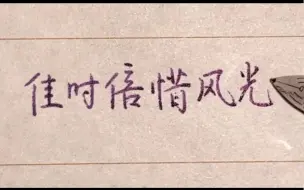 佳时倍惜风光